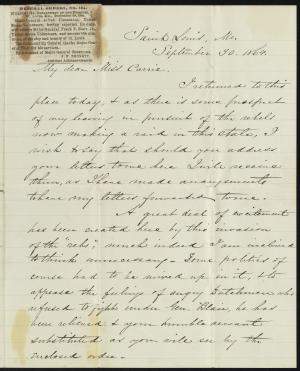 Saint Louis, Mo.
September 30. 1864.
My dear Miss Carrie.
I returned to this
place today, & as there is some prospect
of my leaving in pursuit of the rebels
now making a raid in this State, I
wish to say that should you address
your letters to me here I will receive
them, as I have made arrangements
to have my letters forwarded to me.
A great deal of excitement
has been created here by this invasion
of the "rebs"; much indeed I am inclined
to think unnecessary. Some politics of
course had to be mixed up in it, & to
appease the feeling of angry Dutchmen who
refused to fight under Gen. Blair, he has
been relieved & your humble servant
substituted as you will see by the
enclosed order.